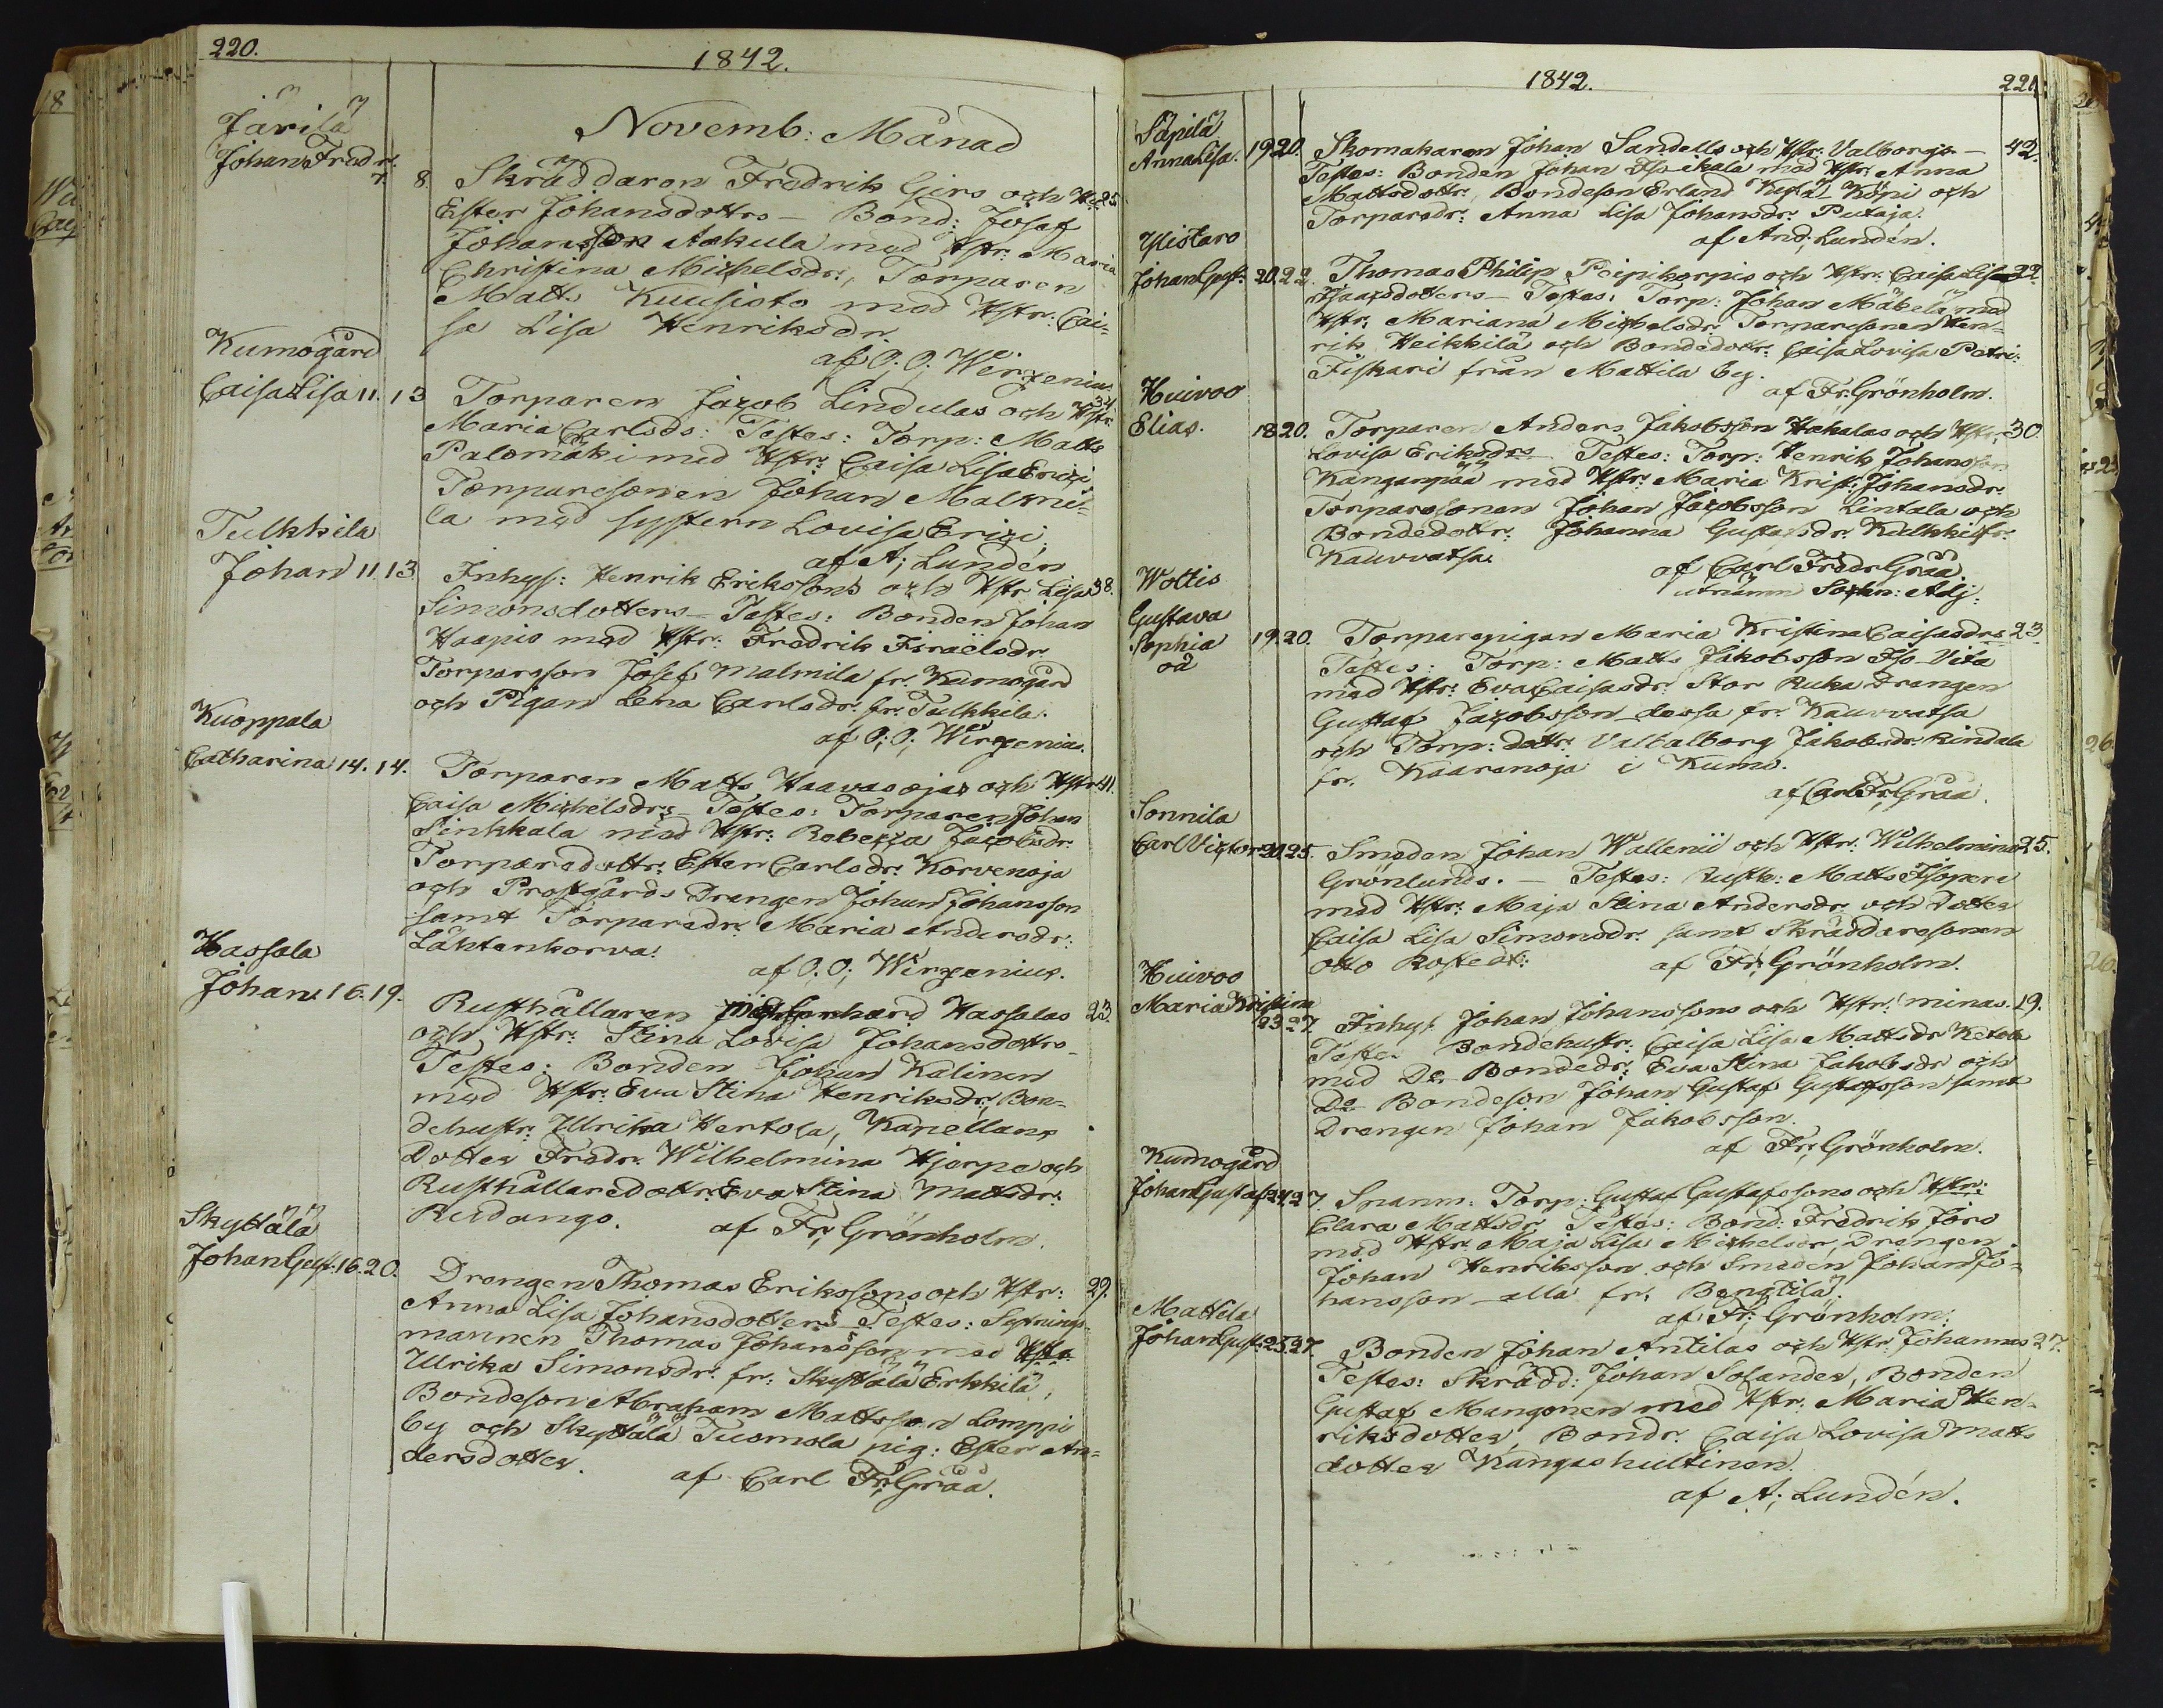 220.
1842.
Novemb: Månad
Järilä
Johan Fredr.
7. 8. Skräddaren Fredrik Girs och Hu 25.
Ester Johansdottrs – Bond: Josef
Johansson Aakula med Hstr: Maria
Christina Michelsdr, Torparen
Matts Kuusisto med Hstr: Cai-
sa Lisa Henriksdr.
af O; O; Wirzenius.
Kumogård
Caisa Lisa 11. 13 Torparen Jacob Lindulas och Hstr: 34
Maria Carlsds: Testes: Torp: Matts
Palomäki med Hstr: Caisa Lisa Erici
Torparesonen Johan Malmi-
la med systern Lovisa Erici;
af A; Lundén
Tulkkila
Johan 11 13. Inhys: Henrik Erikssons och Hstr Lisa 38.
Simonsdotters – Testes: Bonden Johan
Haapio med Hstr: Fredrik Israëlsdr.
Torparsson Josef Malmila fr. Kumogård
och Pigan Lena Carlsdr. fr. Tulkkila.
af O; O; Wirzenius.
Kuoppala
Catharina 14. 14. Torparen Matts Haavasojas och Hstr: 41.
Caisa Michelsdrs – Testes: Torparen Johan
Sinkkala med Hstr: Rebecca Jacobsdr.
Torparedottr. Ester Carlsdr. Korvenoja
och Prostgårds Drengen Johan Johansson
samt Torparedr. Maria Andersdr:
Lähtenkorva.
af O. O; Wirzenius.
Hassala
Johan 16. 19. Rusthållaren Gerhard Hassalas 23.
och Hstr: Stina Lovisa Johansdottrs –
Testes: Bonden Johan Kalinen
med Hstr: Eva Stina Henriksdr, Bon-
dehustr: Ulrika Hertola, Kapellans
Dotter Fredr. Wilhelmina Hjerpe och
Rusthållaredottr. Eva Stina Mattsdr.
Rudango. af Fr; Grönholm.
Skyttälä
Johan Gust. 16. 20. Drengen Thomas Erikssons och Hstr: 29.
Anna Lisa Johansdotters – Testes: Sexmings-
mannen Thomas Johansson med Hstr:
Ulrika Simonsdr. fr: Skyttälä Erkkilä,
Bondeson Abraham Mattsson Lomppi
by och Skyttälä Tuomola pig: Ester An-
dersdotter.
af Carl Fr; Gråå.
1842.
221.
Säpilä
Anna Lisa. 19 20. Skomakaren Johan Sandells och Hstr: Valborgs – 42.
Testes: Bonden Johan Iso ikala med Hstr: Anna
Mattsdottr, Bondeson Erland Kylä Köpi och
Torparedr: Anna Lisa Johansdr. Putaja.
af And; Lundén.
Ylistaro
Johan Gust. 20. 22. Thomas Philip Peipikorpis och Hstr: Caisa Lisa 22.
Isaacsdotters – Testes: Torp: Johan Mäkelä med
Hstr: Mariana Michelsdr. Torparesonen Hen-
rik Heikkilä och Bondedottr: Caisa Lovisa Petri:
Fiskari från Mattila by.
af Fr; Grönholm.
Huivoo
Elias. 18 20. Torparen Anders Jakobsson Hakalas och Hstr: 30.
Lovisa Eriksdrs Testes: Torp: Henrik Johansson
Kanganpää med Hstr: Maria Krist: Johansdr.
Torparesonen Johan Jacobsson Lintala och
Bondedottr. Johanna Gustafsdr. Kulkki fr.
Kauvvatsa.
af Carl Fredr Gråå
utnämn Sockn: Adj:
Woitis
Gustava
Sophia 19. 20. Torparepigan Maria Kristina Caisasdrs 23.
oä Testes: Torp: Matts Jakobsson Iso-Vita
med Hstr: Eva Caisasdr. Stor Ruka Drengen
Gustaf Jacobsson – dessa fr. Kauvvatsa
och Torp: dottr. Valbalborg Jakobsdr. Rindala
fr. Kaaranoja i Kumo.
af Carl Fr; Gråå.
Sonnila
Carl Victor 20. 25. Smeden Johan Wallenii och Hstr: Wilhelmina 25.
Grönlunds. – Testes: Rusth: Matts Isoperi
med Hstr: Maja Stina Andersdr. och Dotter
Caisa Lisa Simonsdr. samt Skräddaresonen
Otto Rostedt: af Fr; Grönholm.
Huivoo
Maria Kristina
23 27. Inhys: Johan Johanssons och Hstr: minas. 19.
Testes Bondehustr: Caisa Lisa Mattsdr Ketola
med Do Bondedr: Eva Stina Jakobsdr och
Do Bondeson Johan Gustaf Gustafsson samt
Drengen Johan Jakobsson.
af Fr; Grönholm.
Kumogård
Johan Gustaf 24. 27. Spanm: Torp: Gustaf Gustafssons och Hstr:
Clara Mattsdr. Testes: Bond: Fredrik Jörs
med Hstr: Maja Lisa Michelsdr, Drengen
Johan Henriksson och Smeden Johan Jo-
hansson – alla fr: Bengtilä.
af Fr; Grönholm.
Mattila
Johan Gust. 25. 27. Bonden Johan Antilas och Hstr: Johannas 27.
Testes: Skrädd: Johan Solander, Bonden
Gustaf Mangonen med Hstr: Maria Hen-
riksdotter, Bondr. Caisa Lovisa Matts
dotter Kangashultinen.
af A; Lundén.